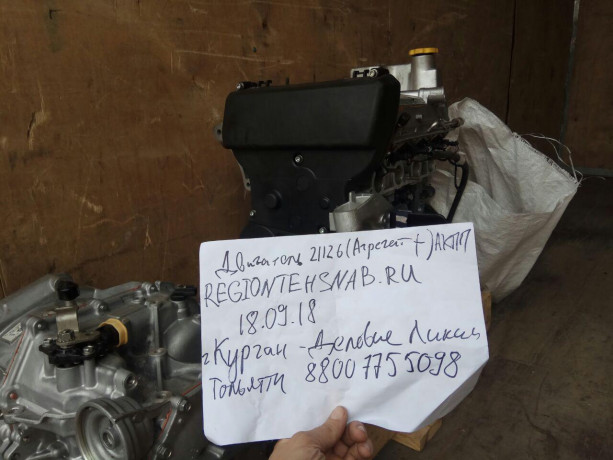 Двигатель 21126 (Агрегат +) АКПП
REGIONTEHSNAB.RU
18.09.18
г Курган - Деловые Линии
Тольятти 88007755098